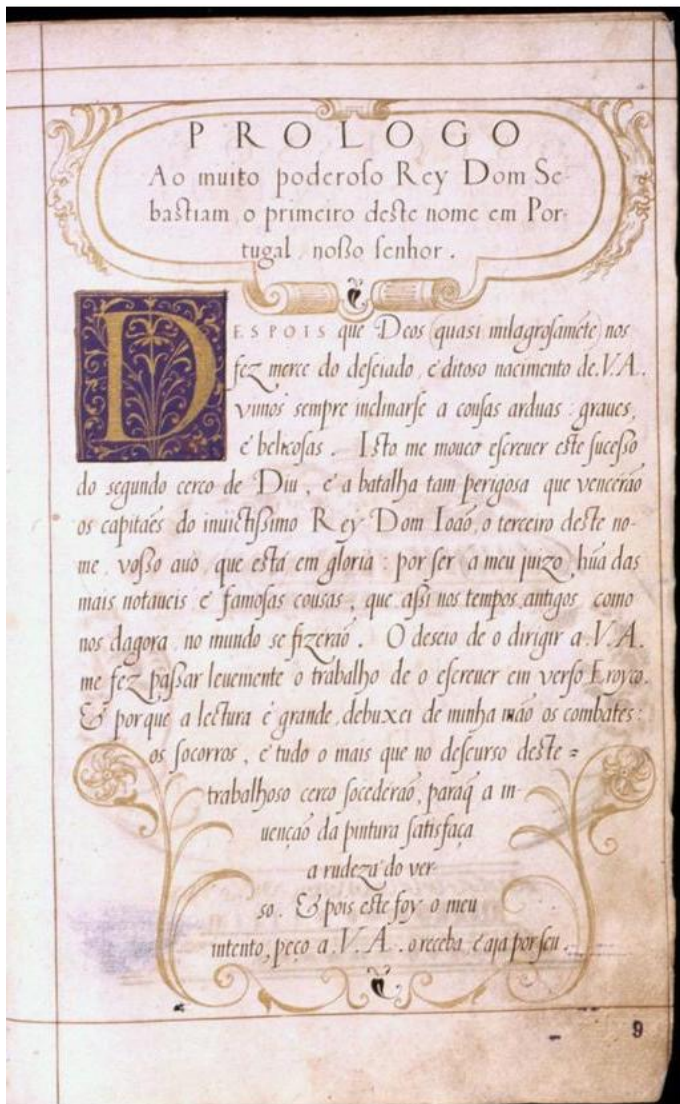 PROLOGO
Ao muito poderoſo Rey Dom Se-
baſtiam o primeiro deſte nome em Por-
tugal noſſo ſenhor.
DESPOIS que Deos (quasi milagroſamẽte) nos
fez merce do deſeiado, e ditoso nacimento de .V.A.
vimos sempre inclinarſe a couſas arduas: graues,
é belicoſas. Iſto me moueo eſcreuer eſte ſuceſſo
do segundo cerco de Diu, é a batalha tam perigosa que vencerão
os capitaẽs do inuictiſſimo Rey Dom Ioaõ, o terceiro deſte no-
me, voſſo auò, que eſtá em gloria: por ſer a meu juizo, hũa das
mais notaueis é famoſas cousas, que aſſi nos tempos antigos como
nos dagora no mundo se fizeraõ. O deseio de o dirigir a .V.A.
me fez paſſar leuemente o trabalho de o eſcreuer em verſo Eroyco.
& porque a lectura é grande, debuxei de minha mão os combates:
os ſocorros, é tudo o mais que no deſcurſo deſte =
trabalhoso cerco ſocederaõ, paraq̃ a in-
uençaõ da pintura ſatisfaça
a rudeza do ver-
so. & pois eſte foy o meu
intento, peço a .V.A. o receba, é aja por ſeu.
9